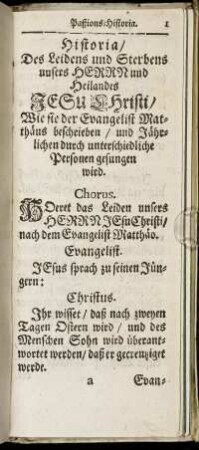 Passions-Historia. 1
Historia/
Des Leidens und Sterbens
unsers HERRN und
Heilandes
JESU Christi/
Wie sie der Evangelist Mat-
thäus beschrieben / und Jähr-
lichen durch unterschiedliche
Personen gesungen
wird.
Chorus.
Höret das Leiden unsers
HERRN JEsu Christi/
nach dem Evangelist Matthäo.
Evangelist.
JEsus sprach zu seinen Jün-
gern:
Christus.
Ihr wisset / daß nach zweyen
Tagen Ostern wird / und des
Menschen Sohn wird überant-
wortet werden/ daß er gecreutziget
werde.
a Evan-